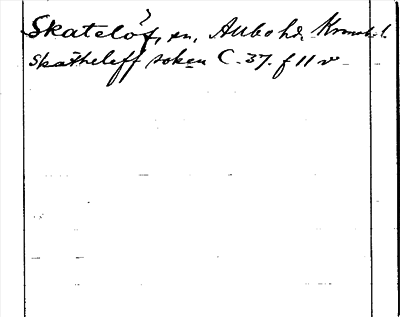 Skatelöf, sn, Allbo hd. Kronob. l.
skätheleff soken C. 37. f 11 v